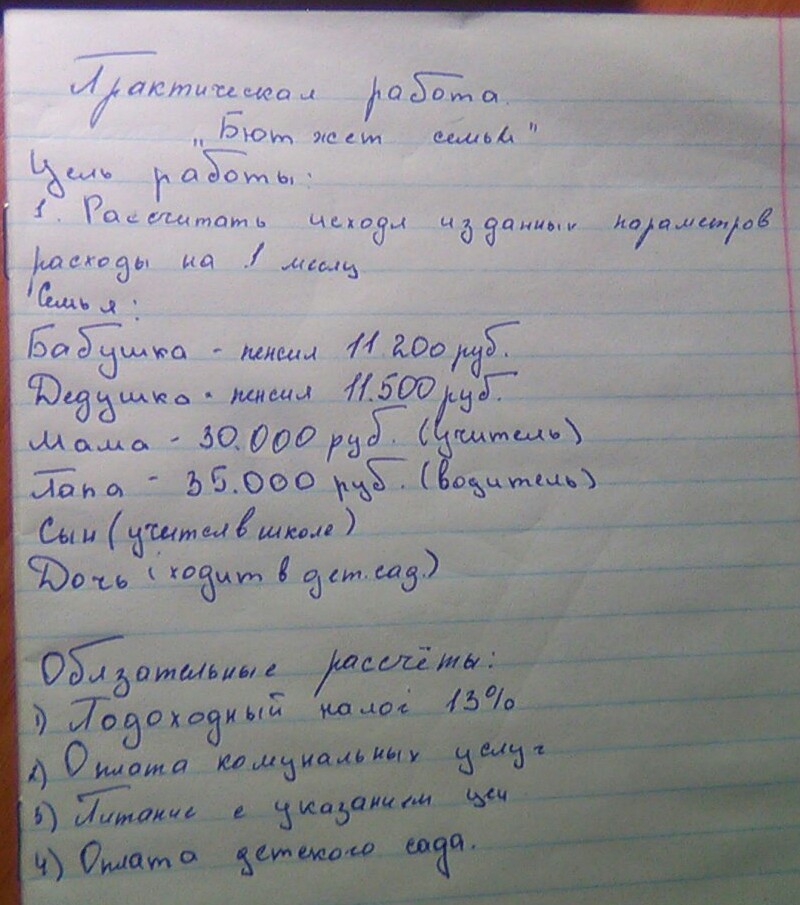 Практическая работа.
„Бютжет семьи"
Цель работы:
1. Рассчитать исходя из данных параметров
расходы на 1 месяц
Семья:
Бабушка - пенсия 11 200 руб.
Дедушка - пенсия 11.500 руб.
Мама - 30.000 руб. (учитель)
Папа - 35.000 руб. (водитель)
Сын (учится в школе)
Дочь (ходит в дет.сад.)
Обязательные рассчёты:
1) Подоходный налог 13%
2) Оплата комунальных услуг
3) Питание с указанием цен
4) Оплата детского сада.